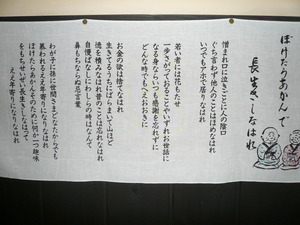 ぼけたらあかんで
長生きしなはれ
憎まれ口に泣きごとに人の陰口
ぐち言わず他人のことはほめなはれ
いつでもアホで居りなはれ
若い者には花もたせ
一歩さがってゆずるのがいずれお世話に
なる身ならいつも感謝を忘れずに
どんな時でもへえおおきに
お金の欲は捨てなはれ
生きてるうちにばらまいて山ほど
徳を積みなはれ
自慢ばなしにわしらの時はなんて
鼻もちならぬ忌言葉
わが子に孫に世間さまどなたからでも
慕われるええ年寄りになりなはれ
ぼけたらあかんそのために何か一つ趣味
をもちせいぜい長生きしなはって
ええ年寄りになりなはれ